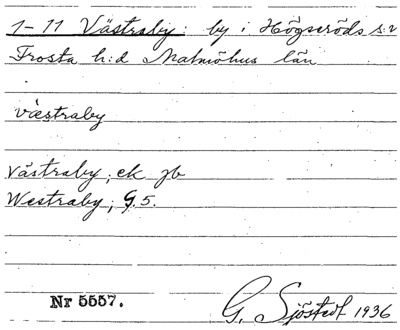 1–11 Västraby: by i Högseröds s:n
Frosta h:d Malmöhus län
västraby
Västraby; ek jb
Westraby; G. 5.
Nr 5557.
G. Sjöstedt 1936